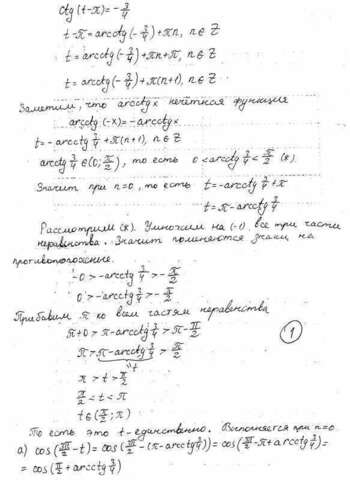 ctg(t-π)=-3/4
t-π=arcctg(-3/4)+πn, n∈Z
t=arcctg(-3/4)+πn+π, n∈Z
t=arcctg(-3/4)+π(n+1), n∈Z
Заметим, что arcctgx нечётная функция
arcctg(-x)=-arcctgx
t=-arcctg 3/4+π(n+1), n∈Z
arcctg 3/4∈(0;π/2), то есть 0<arcctg 3/4<π/2 (*).
Значит при n=0, то есть t=-arcctg 3/4+π
t=π-arcctg 3/4
Рассмотрим (*). Умножим на (-1) все три части
неравенства. Значит поменяются знаки на
противоположные.
-0>-arcctg 3/4>-π/2
0>-arcctg 3/4>-π/2
Прибавим π ко всем частям неравенства
π+0>π-arcctg 3/4>π-π/2
1
π>π-arcctg 3/4>π/2
"t
π>t>π/2
π/2<t<π
t∈(π/2;π)
То есть это t-единственно. Выполняется при n=0.
а) cos(3π/2-t)=cos(3π/2-(π-arcctg 3/4))=cos(3π/2-π+arcctg 3/4)=
=cos(π/2+arcctg 3/4)